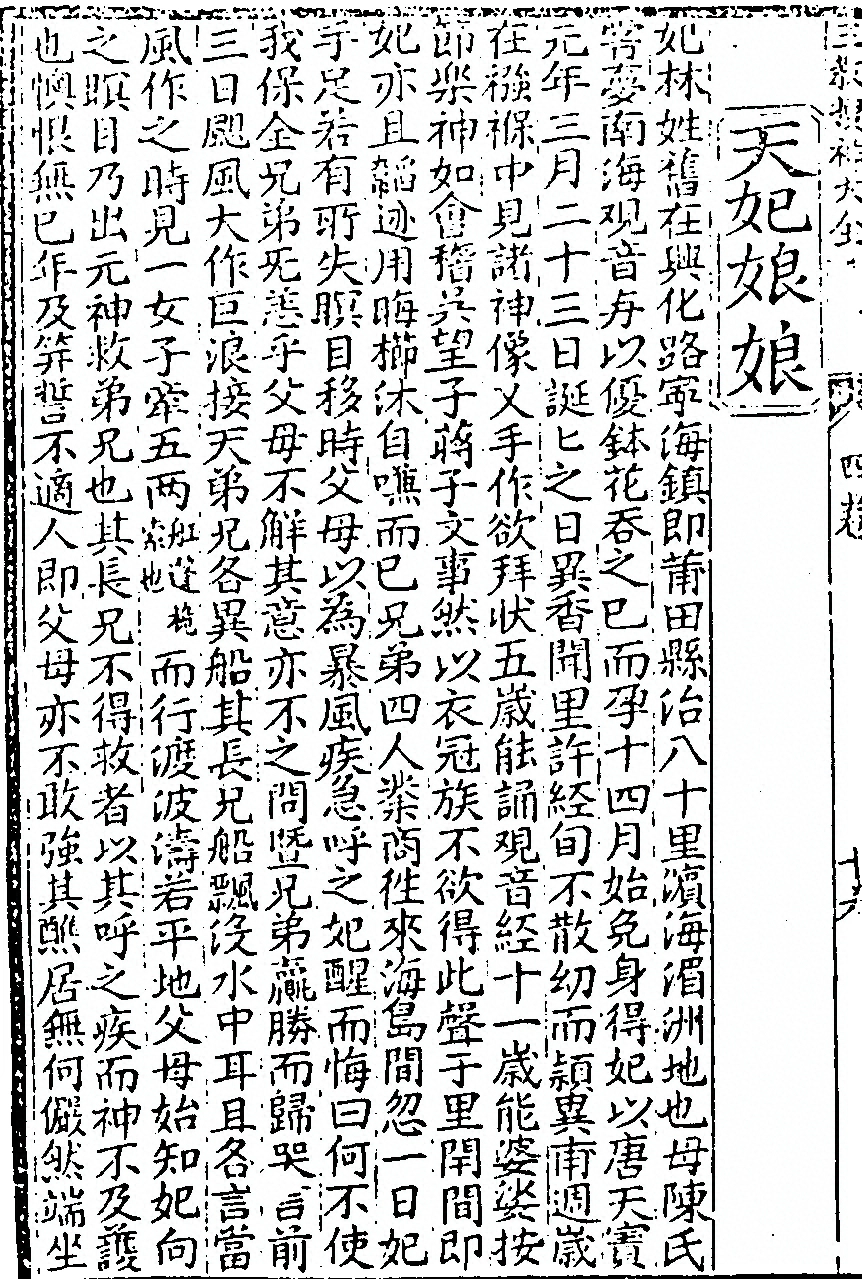 天妃娘娘
妃林姓舊在興化路寧海鎮即莆田縣治八十里濵海湄洲地也母陳氏
甞夢南海观音与以優鉢花吞之已而孕十四月始免身得妃以唐天寶
元年三月二十三日誕匕之日異香聞里許経旬不散幼而頴異甫週歲
在襁褓中見諸神像乂手作欲拜状五歲能誦观音経十一歲能婆娑按
節楽神如會稽吳望子蔣子文事然以衣冠族不欲得此聲于里閈間即
妃亦且韜迹用晦櫛沐自嘸而已兄弟四人業商徃來海島間忽一日妃
手足若有所失瞑目移時父母以為暴風疾急呼之妃醒而悔曰何不使
我保全兄弟死恙乎父母不解其意亦不之問暨兄弟贏勝而歸哭言前
三日颶風大作巨浪接天弟兄各異船其長兄船飄没水中耳且各言當
風作之時見一女子牽五两舡蓬桅索也而行渡波濤若平地父母始知妃向
之瞑目乃出元神救弟兄也其長兄不得救者以其呼之疾而神不及護
也懊恨無已年及笄誓不適人即父母亦不敢強其醮居無何儼然端坐
四卷